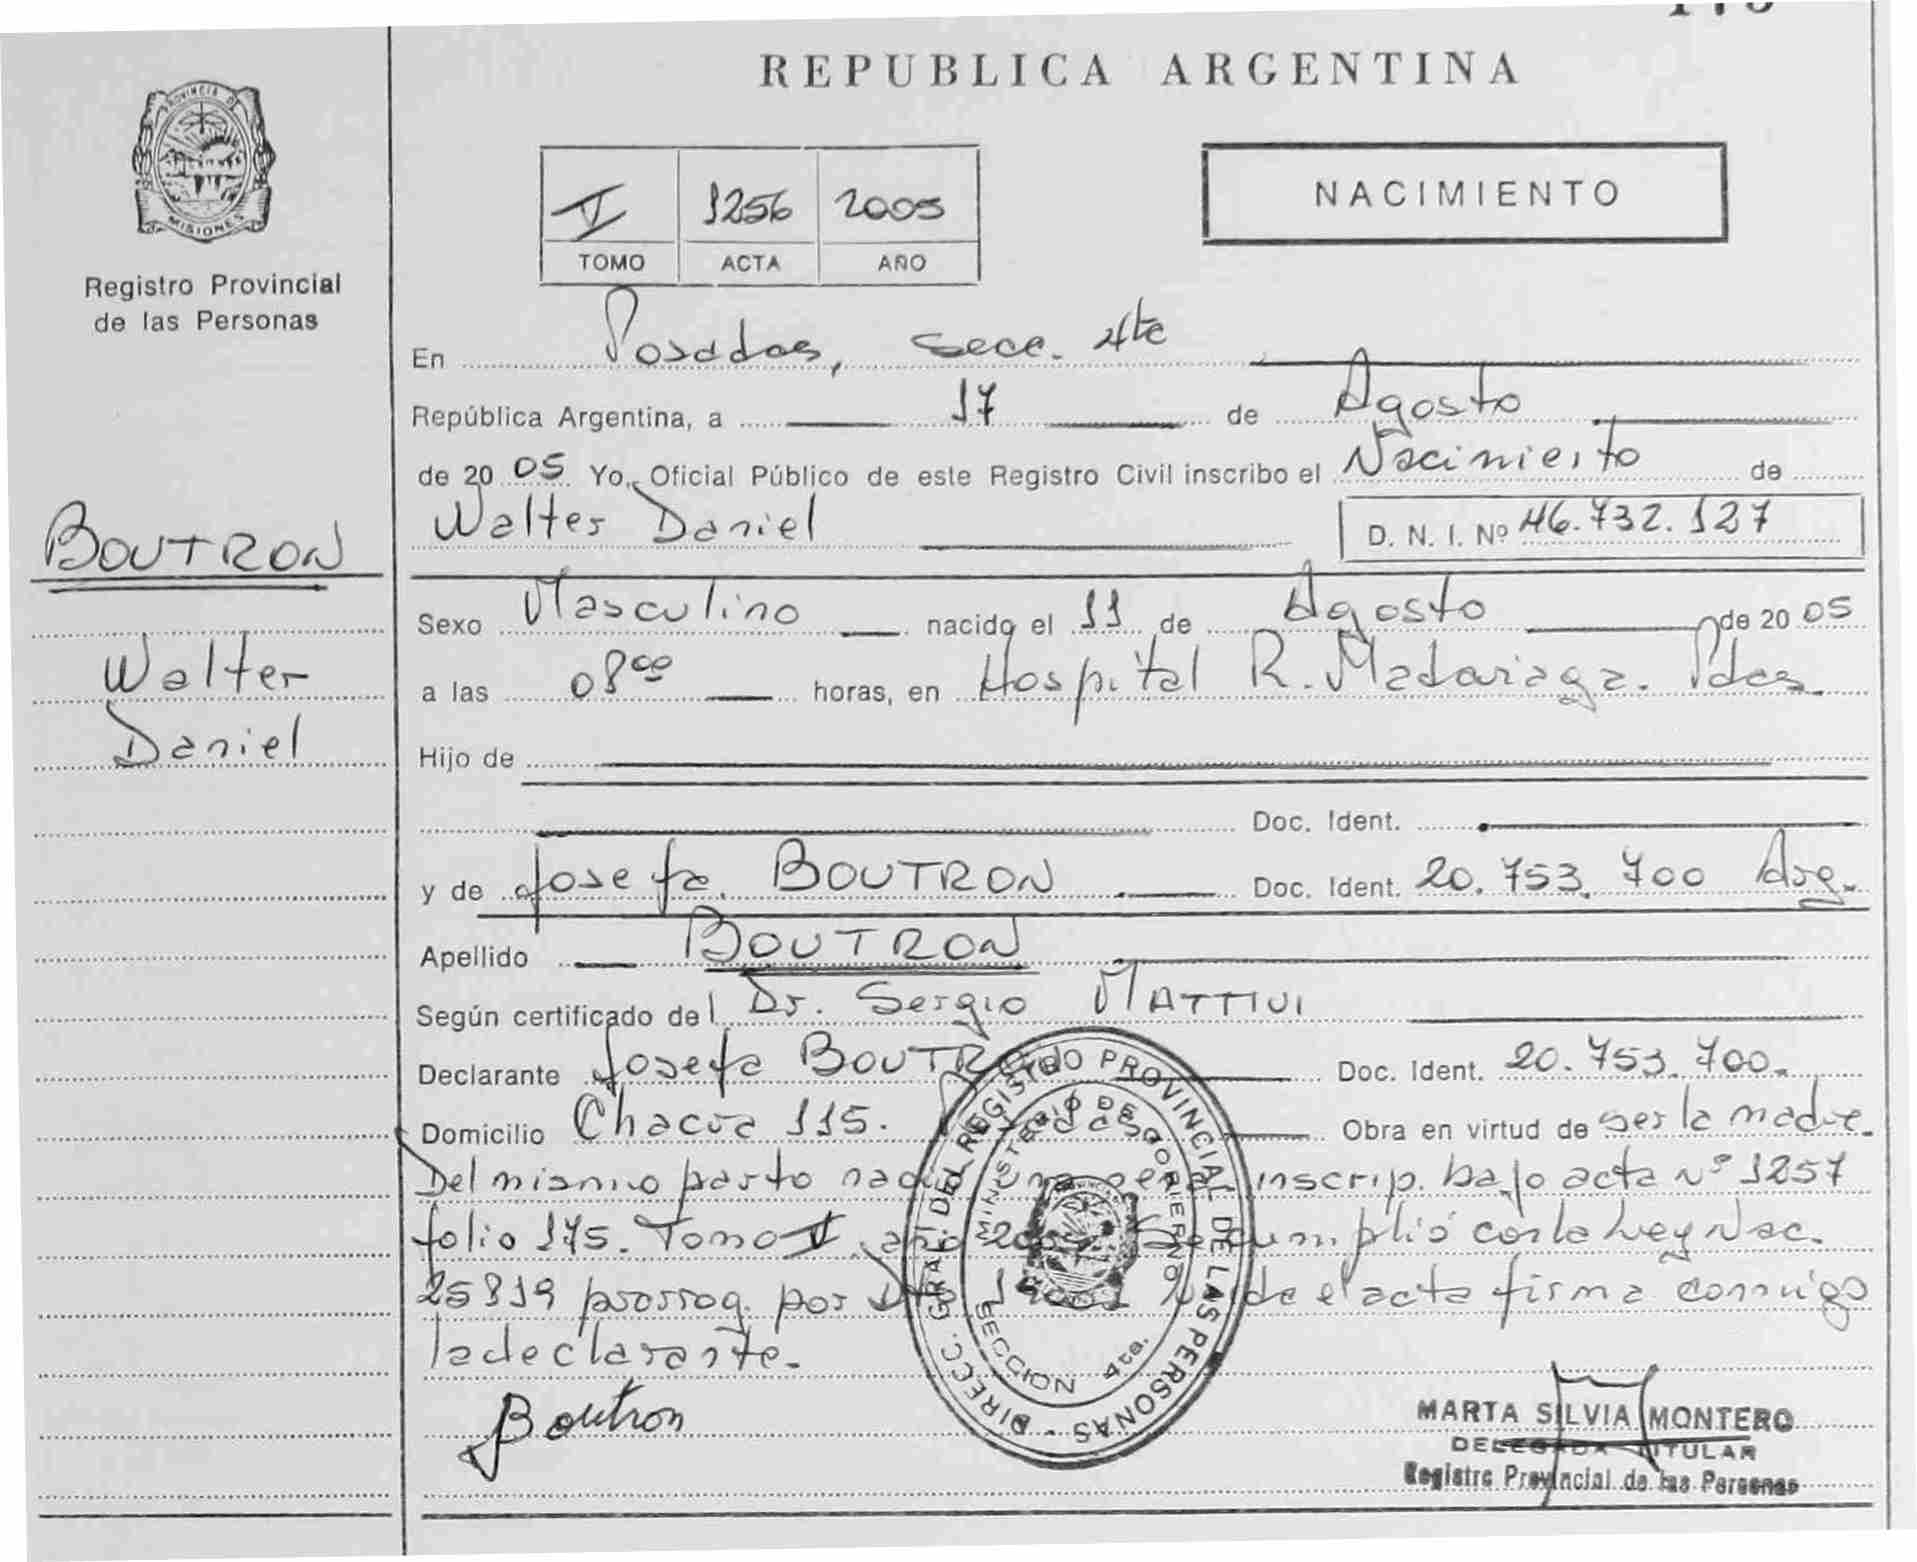 REPUBLICA ARGENTINA
PROVINCIA DE
MISIONES
Registro Provincial
de las Personas
V 1256 2005
TOMO ACTA AÑO
NACIMIENTO
En Posadas, Secc. 4ta
República Argentina, a 17 de Agosto
de 2005 Yo, Oficial Público de este Registro Civil inscribo el Nacimiento de
Walter Daniel D. N. I. Nº 46.732.127
BOUTRON
Walter
Daniel
Sexo Masculino nacido el 11 de Agosto de 2005
a las 08⁰⁰ horas, en Hospital R. Madariaga. Pdas.
Hijo de
Doc. Ident.
y de Josefa BOUTRON Doc. Ident. 20.753.700 Arg.
Apellido BOUTRON
Según certificado del Dr. Sergio MATTIVI
Declarante Josefa BOUTRON Doc. Ident. 20.753.700.
Domicilio Chacra 115. Posadas Obra en virtud de ser la madre.
Del mismo parto nació inscrip. bajo acta Nº 1257
folio 175. Tomo V, año 2005 Se cumplió con la Ley Nac.
25819 prorrog. por Dto el acta firma conmigo
la declarante.
Boutron
DIRECC. GRAL. DEL REGISTRO PROVINCIAL DE LAS PERSONAS
MINISTERIO DE GOBIERNO
SECCION 4ta.
MARTA SILVIA MONTERO
DELEGADA TITULAR
Registro Provincial de las Personas